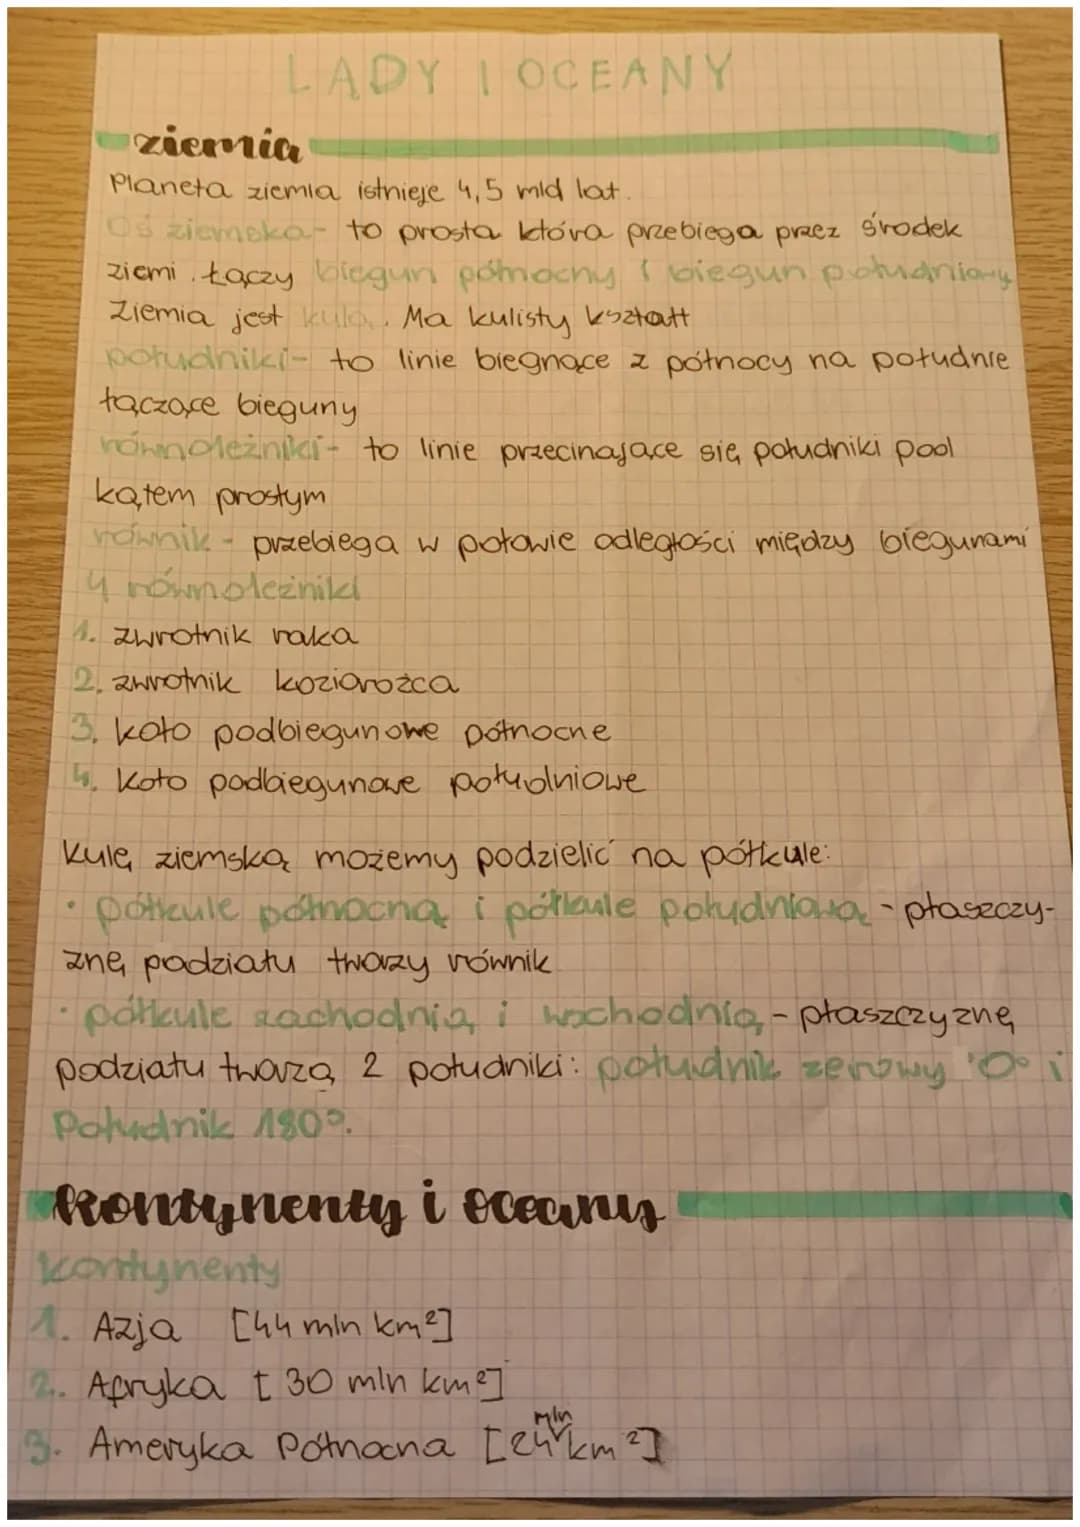 LĄDY I OCEANY
ziemia
Planeta ziemia istnieje 4,5 mld lat.
Oś ziemska- to prosta która przebiega przez środek
ziemi. Łączy biegun północny i biegun południowy
Ziemia jest kulą. Ma kulisty kształt
południki- to linie biegnące z północy na południe
łączące bieguny
równoleżniki- to linie przecinające się południki pod
kątem prostym
równik - przebiega w połowie odległości między biegunami
4 równoleżniki
1. zwrotnik raka
2. zwrotnik koziorożca
3. koło podbiegunowe północne
4. Koło podbiegunowe południowe
Kulę ziemską możemy podzielić na półkule:
• półkule północną i półkule południową - płaszczy-
znę podziału tworzy równik
• półkule zachodnią i wschodnią - płaszczyznę
podziału tworzą 2 południki: południk zerowy '0° i
Południk 180°.
kontynenty i oceany
kontynenty
1. Azja [44 mln km²]
2. Afryka [30 mln km²]
3. Ameryka Północna [24 mln km²]